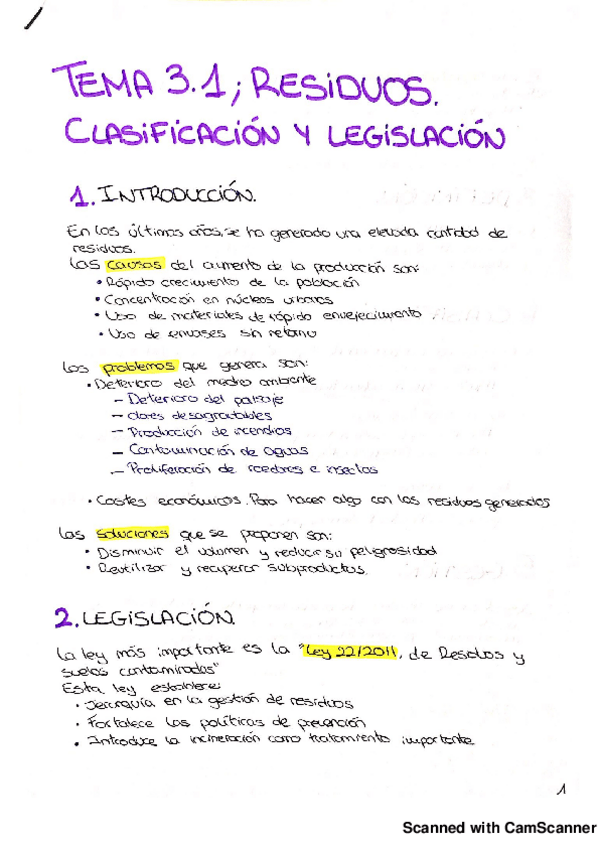 TEMA 3.1; RESIDUOS.
CLASIFICACIÓN Y LEGISLACIÓN
1. INTRODUCCIÓN.
En los últimos años, se ha generado una elevada cantidad de
residuos.
Las causas del aumento de la producción son:
• Rápido crecimiento de la población
• Concentración en núcleos urbanos
• Uso de materiales de rápido envejecimiento
• Uso de envases sin retorno
Los problemas que genera son:
• Deterioro del medio ambiente
– Deterioro del paisaje
– olores desagradables
– Producción de incendios
– Contaminación de aguas
– Proliferación de roedores e insectos
• Costes económicos. Para hacer algo con los residuos generados
Las soluciones que se proponen son:
• Disminuir el volumen y reducir su peligrosidad
• Reutilizar y recuperar subproductos.
2. LEGISLACIÓN.
La ley más importante es la "Ley 22/2011, de Residuos y
suelos contaminados"
Esta ley establece:
• Jerarquía en la gestión de residuos
• Fortalece las políticas de prevención
• Introduce la incineración como tratamiento importante
1
Scanned with CamScanner